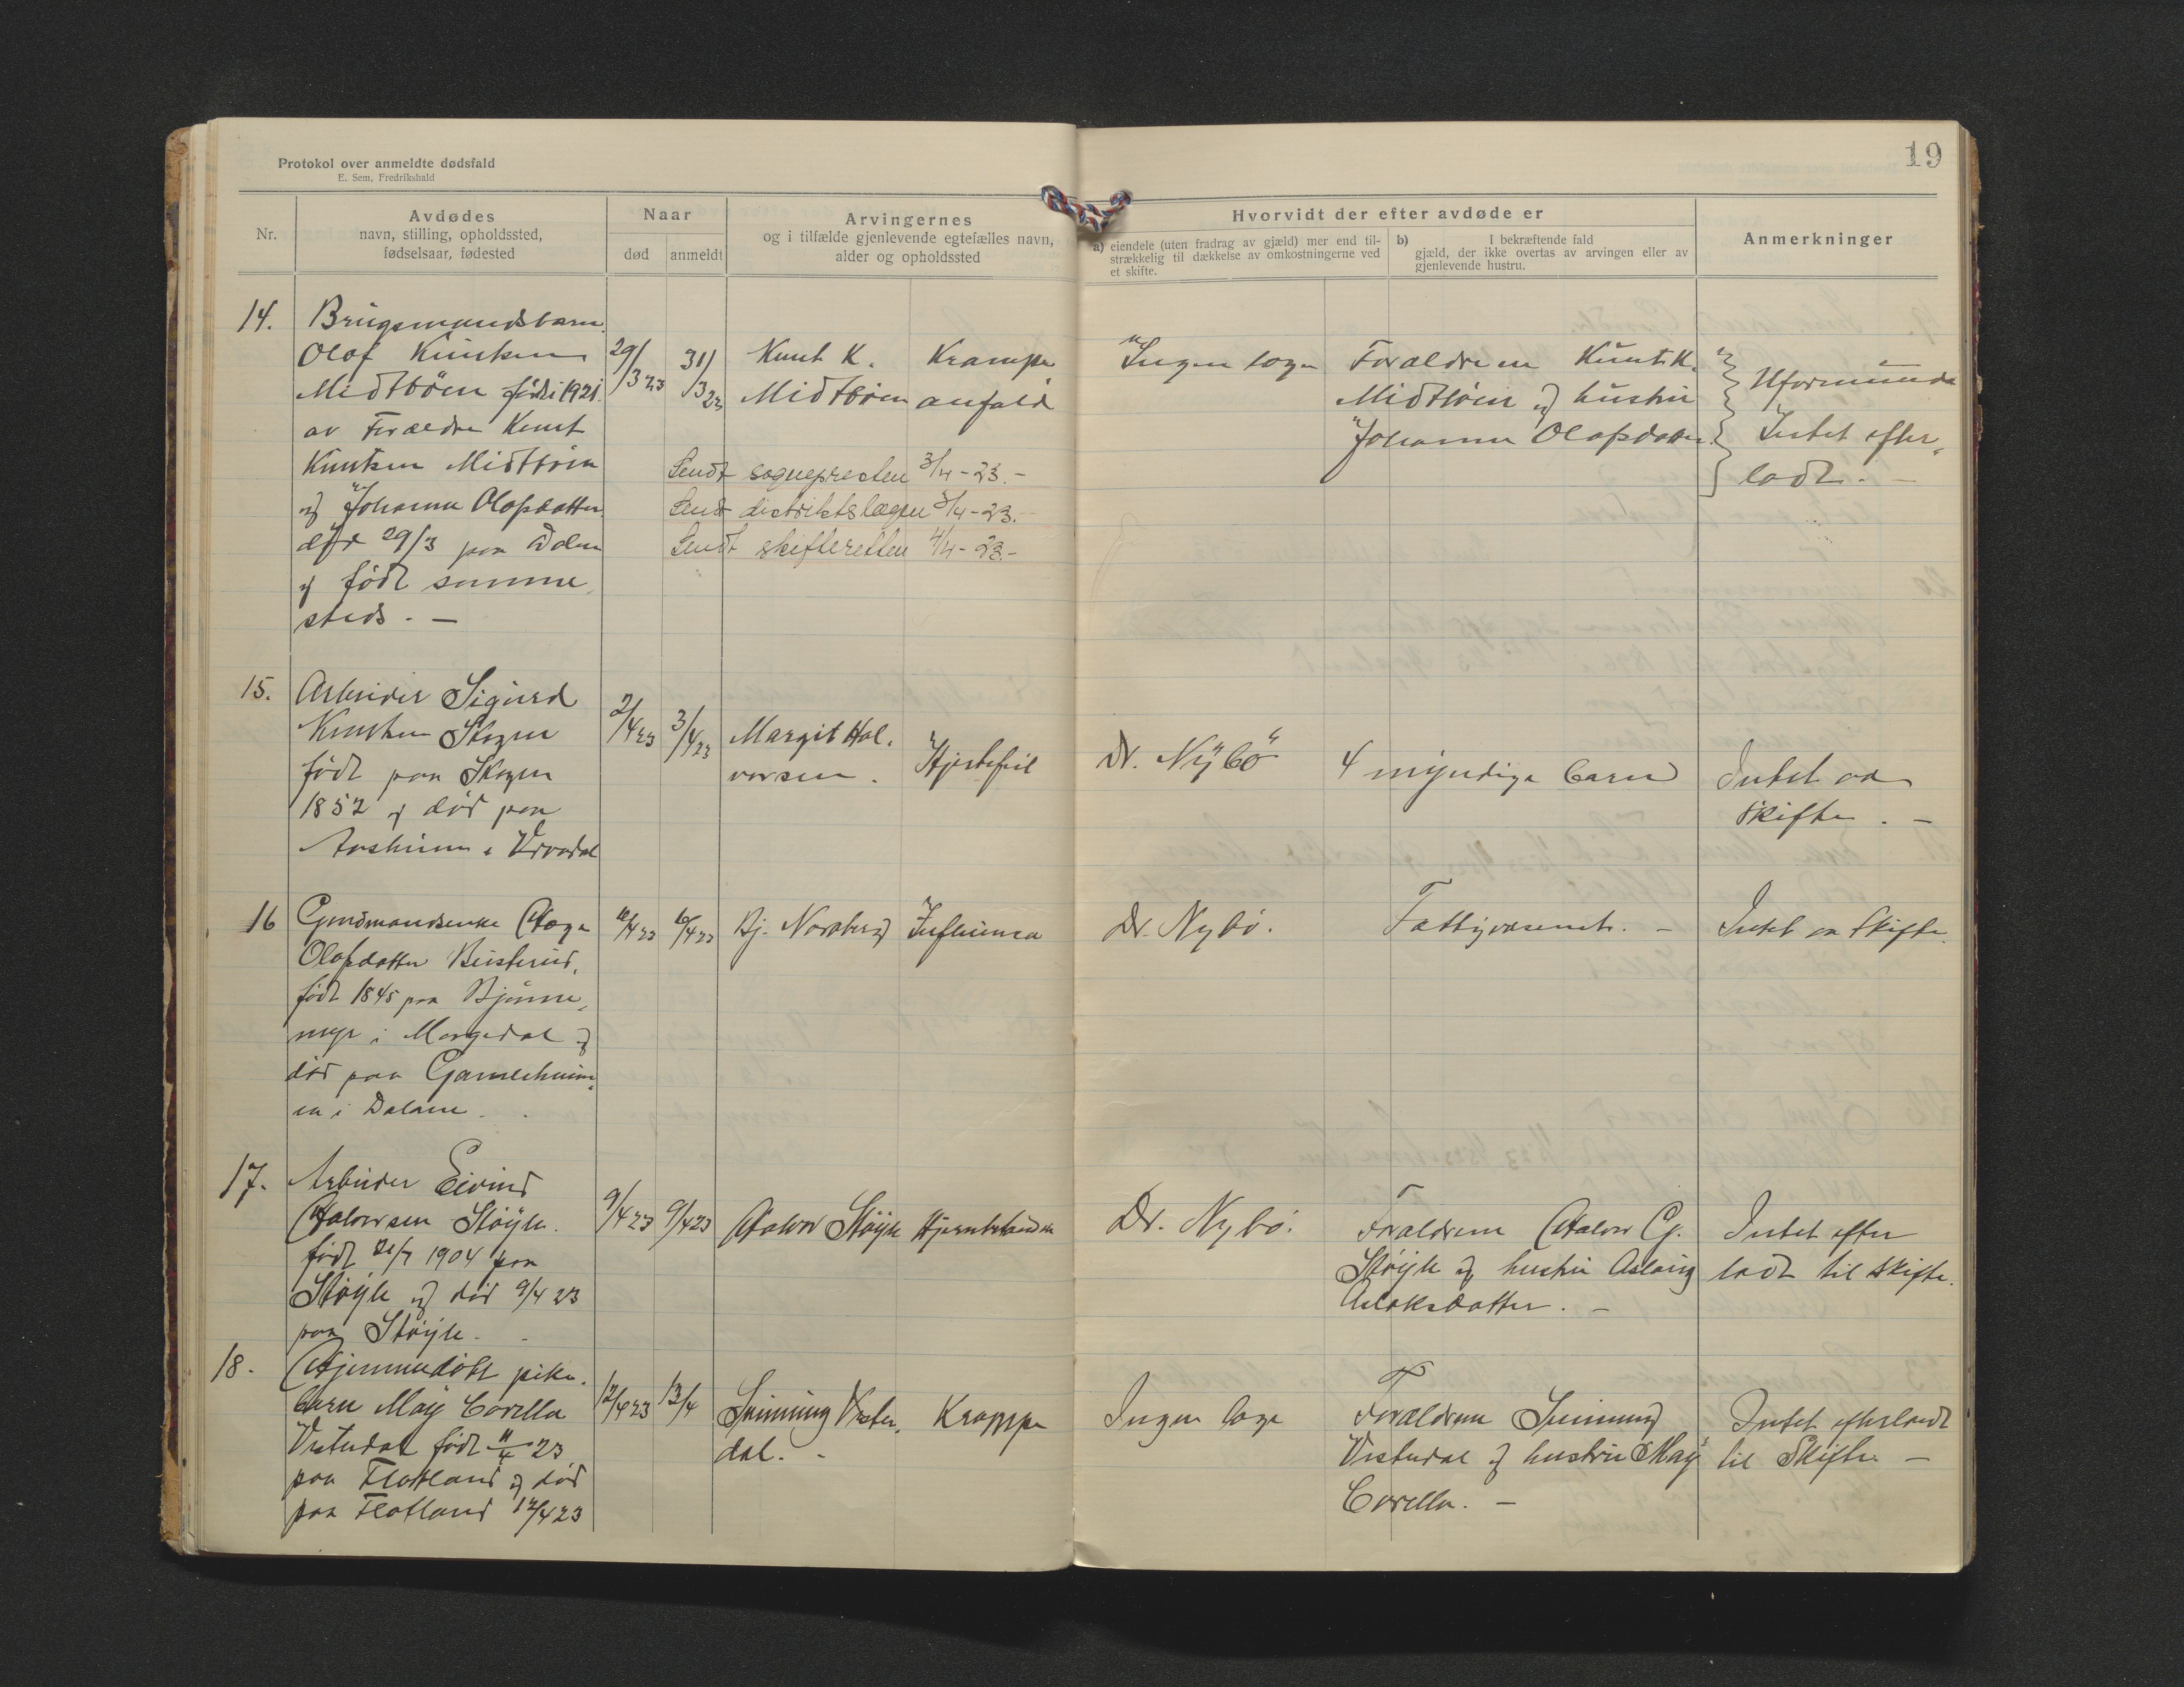 19
Protokol over anmeldte dødsfald
E. Sem, Fredrikshald
Nr.
Avdødes
navn, stilling, opholdssted,
fødselsaar, fødested
Naar
død
anmeldt
Arvingernes
og i tilfælde gjenlevende egtefælles navn,
alder og opholdssted
Hvorvidt der efter avdøde er
a) eiendele (uten fradrag av gjæld) mer end til-
strækkelig til dækkelse av omkostningerne ved
et skifte.
b) I bekræftende fald
gjæld, der ikke overtas av arvingen eller av
gjenlevende hustru.
Anmerkninger
14.
Brugsmandsbarn
Olaf Knutsen
Midtbøen født i 1921.
av Forældre Knut
Knutsen Midtbøen
og Johanne Olafsdatter
død 29/3 paa Dalen
og født samme
steds. —
29/3 23
31/3 23
Knut K.
Midtbøen
Krampe
anfald
Sendt sognepresten 3/4 - 23. -
Sendt distriktslægen 3/4 - 23.
Sendt skifteretten 4/4 - 23. -
Ingen læge
Forældrene Knut K.
Midtbøen og hustru
Johanne Olafsdatter.
Uformuende
Intet efter
ladt. —
15.
Arbeider Sigurd
Knutsen Skogen
født paa Skogen
1852 og død paa
i Vraadal
2/4 23
3/4 23
Margit Hal.
vorsen.
Hjertefeil
Dr. Nybö
4 myndige barn
Intet aa
skifte. —
16
Gaardmandsenke Aase
Olafsdatter
født 1845 paa Bjönne
myr i Morgedal og
død paa
en i Dalane.
6/4 23
6/4 23
Bj. Nordberg
Influensa
Dr. Nybö.
Fattigvæsenet. -
Intet aa skifte.
17.
Arbeider Eivind
Halvorsen Støyle.
født 21/7 1904 paa
Støyle og død 9/4 23
paa Støyle. -
9/4 23
9/4 23
Halvor Støyle
Dr. Nybö.
Forældrene Halvor G.
Støyle og hustru Aslaug
Aslaksdatter. -
Intet efter
ladt til skifte.
18.
Hjemmedøbt pike.
barn May Corella
Vesterdal født 11/4 23
paa Flatland og død
paa Flatland 12/4 23
12/4 23
13/4
Vester.
dal. -
Krampe
Ingen læge
Forældrene
Vesterdal og hustru May
Corella. —
Intet efterladt
til Skifte —